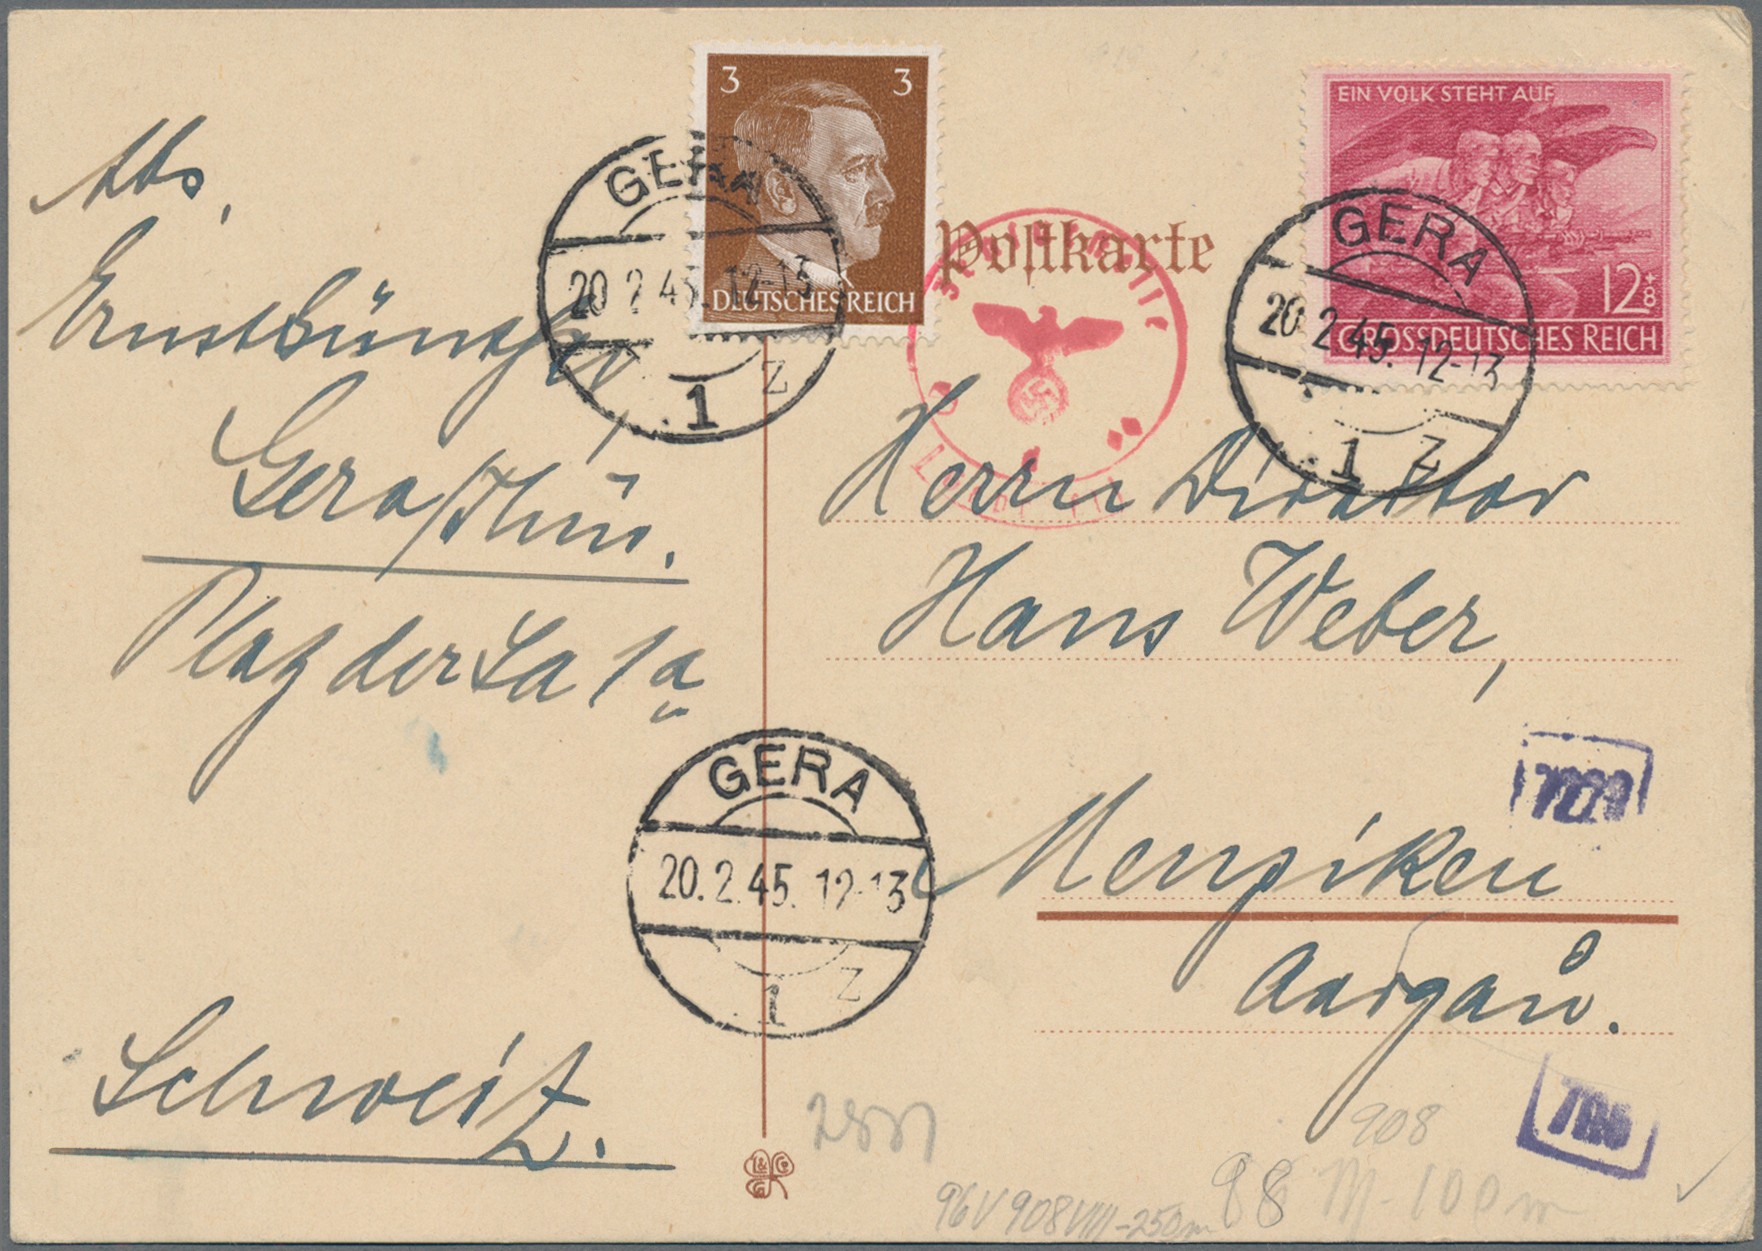 3 3
DEUTSCHES REICH
EIN VOLK STEHT AUF
12+8
GROSSDEUTSCHES REICH
Postkarte
GERA
20.2.45.12-13
1 z
GERA
20.2.45.12-13
1 z
Abs.
Ernst Günther
Gera/Thür.
Platz der SA 1a
Herrn Direktor
Hans Weber,
Menziken
Aargau.
Schweiz.
GERA
20.2.45.12-13
1 z
908
96V908VIII-250m
98 M-100m